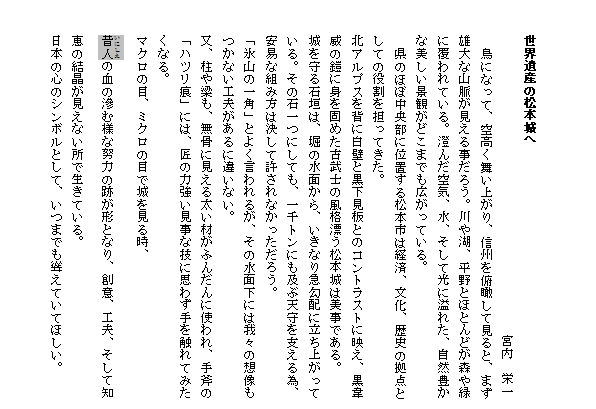 世界遺産の松本城へ
宮内　栄一
鳥になって、空高く舞い上がり、信州を俯瞰して見ると、まず
雄大な山脈が見える事だろう。川や湖、平野とほとんどが森や緑
に覆われている。澄んだ空気、水、そして光に溢れた、自然豊か
な美しい景観がどこまでも広がっている。
県のほぼ中央部に位置する松本市は経済、文化、歴史の拠点と
しての役割を担ってきた。
北アルプスを背に白壁と黒下見板とのコントラストに映え、黒韋
威の鎧に身を固めた古武士の風格漂う松本城は美事である。
城を守る石垣は、堀の水面から、いきなり急勾配に立ち上がって
いる。その石一つにしても、一千トンにも及ぶ天守を支える為、
安易な組み方は決して許されなかっただろう。
「氷山の一角」とよく言われるが、その水面下には我々の想像も
つかない工夫があるに違いない。
又、柱や梁も、無骨に見える太い材がふんだんに使われ、手斧の
「ハツリ痕」には、匠の力強い見事な技に思わず手を触れてみた
くなる。
マクロの目、ミクロの目で城を見る時、
昔人の血の滲む様な努力の跡が形となり、創意、工夫、そして知
いにしえ
恵の結晶が見えない所で生きている。
日本の心のシンボルとして、いつまでも聳えていてほしい。